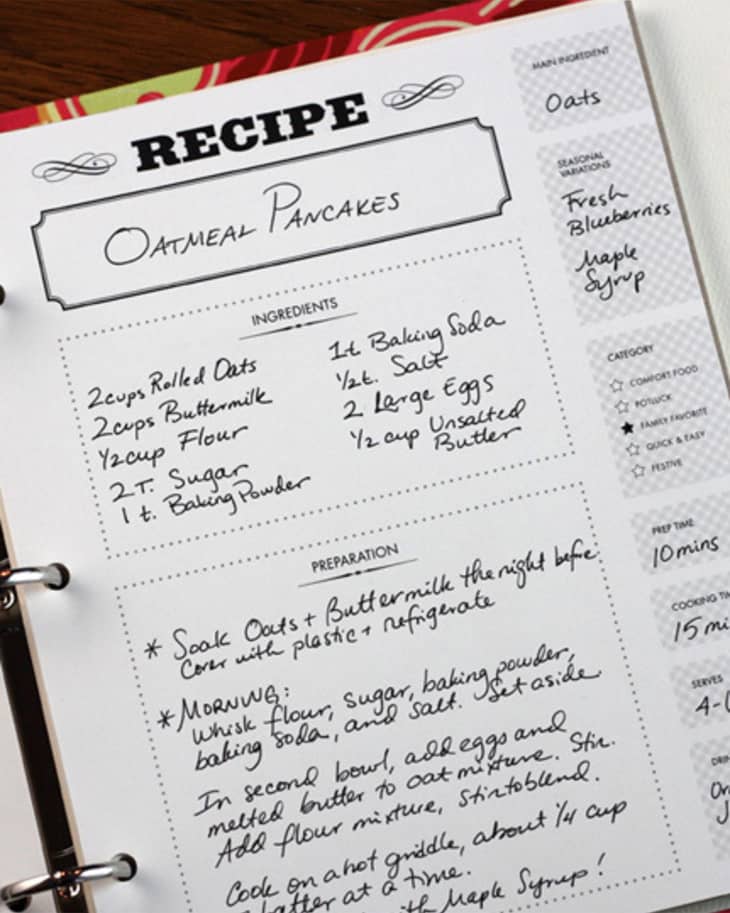 RECIPE
OATMEAL PANCAKES
INGREDIENTS
2 cups Rolled Oats
2 cups Buttermilk
1/2 cup Flour
2 T. Sugar
1 t. Baking Powder
1 t. Baking Soda
1/2 t. Salt
2 Large Eggs
1/2 cup Unsalted
Butter
PREPARATION
* Soak Oats + Buttermilk the night before
Cover with plastic + refrigerate
* MORNING:
Whisk flour, sugar, baking powder,
baking soda, and salt. Set aside.
In second bowl, add eggs and
melted butter to oat mixture. Stir.
Add flour mixture, stir to blend.
Cook on a hot griddle, about 1/4 cup
batter at a time.
with Maple Syrup!
MAIN INGREDIENT
Oats
SEASONAL
VARIATIONS
Fresh
Blueberries
Maple
Syrup
CATEGORY
☆ COMFORT FOOD
☆ POTLUCK
★ FAMILY FAVORITE
☆ QUICK & EASY
☆ FESTIVE
PREP TIME
10 mins
COOKING
15
SERVES
4-